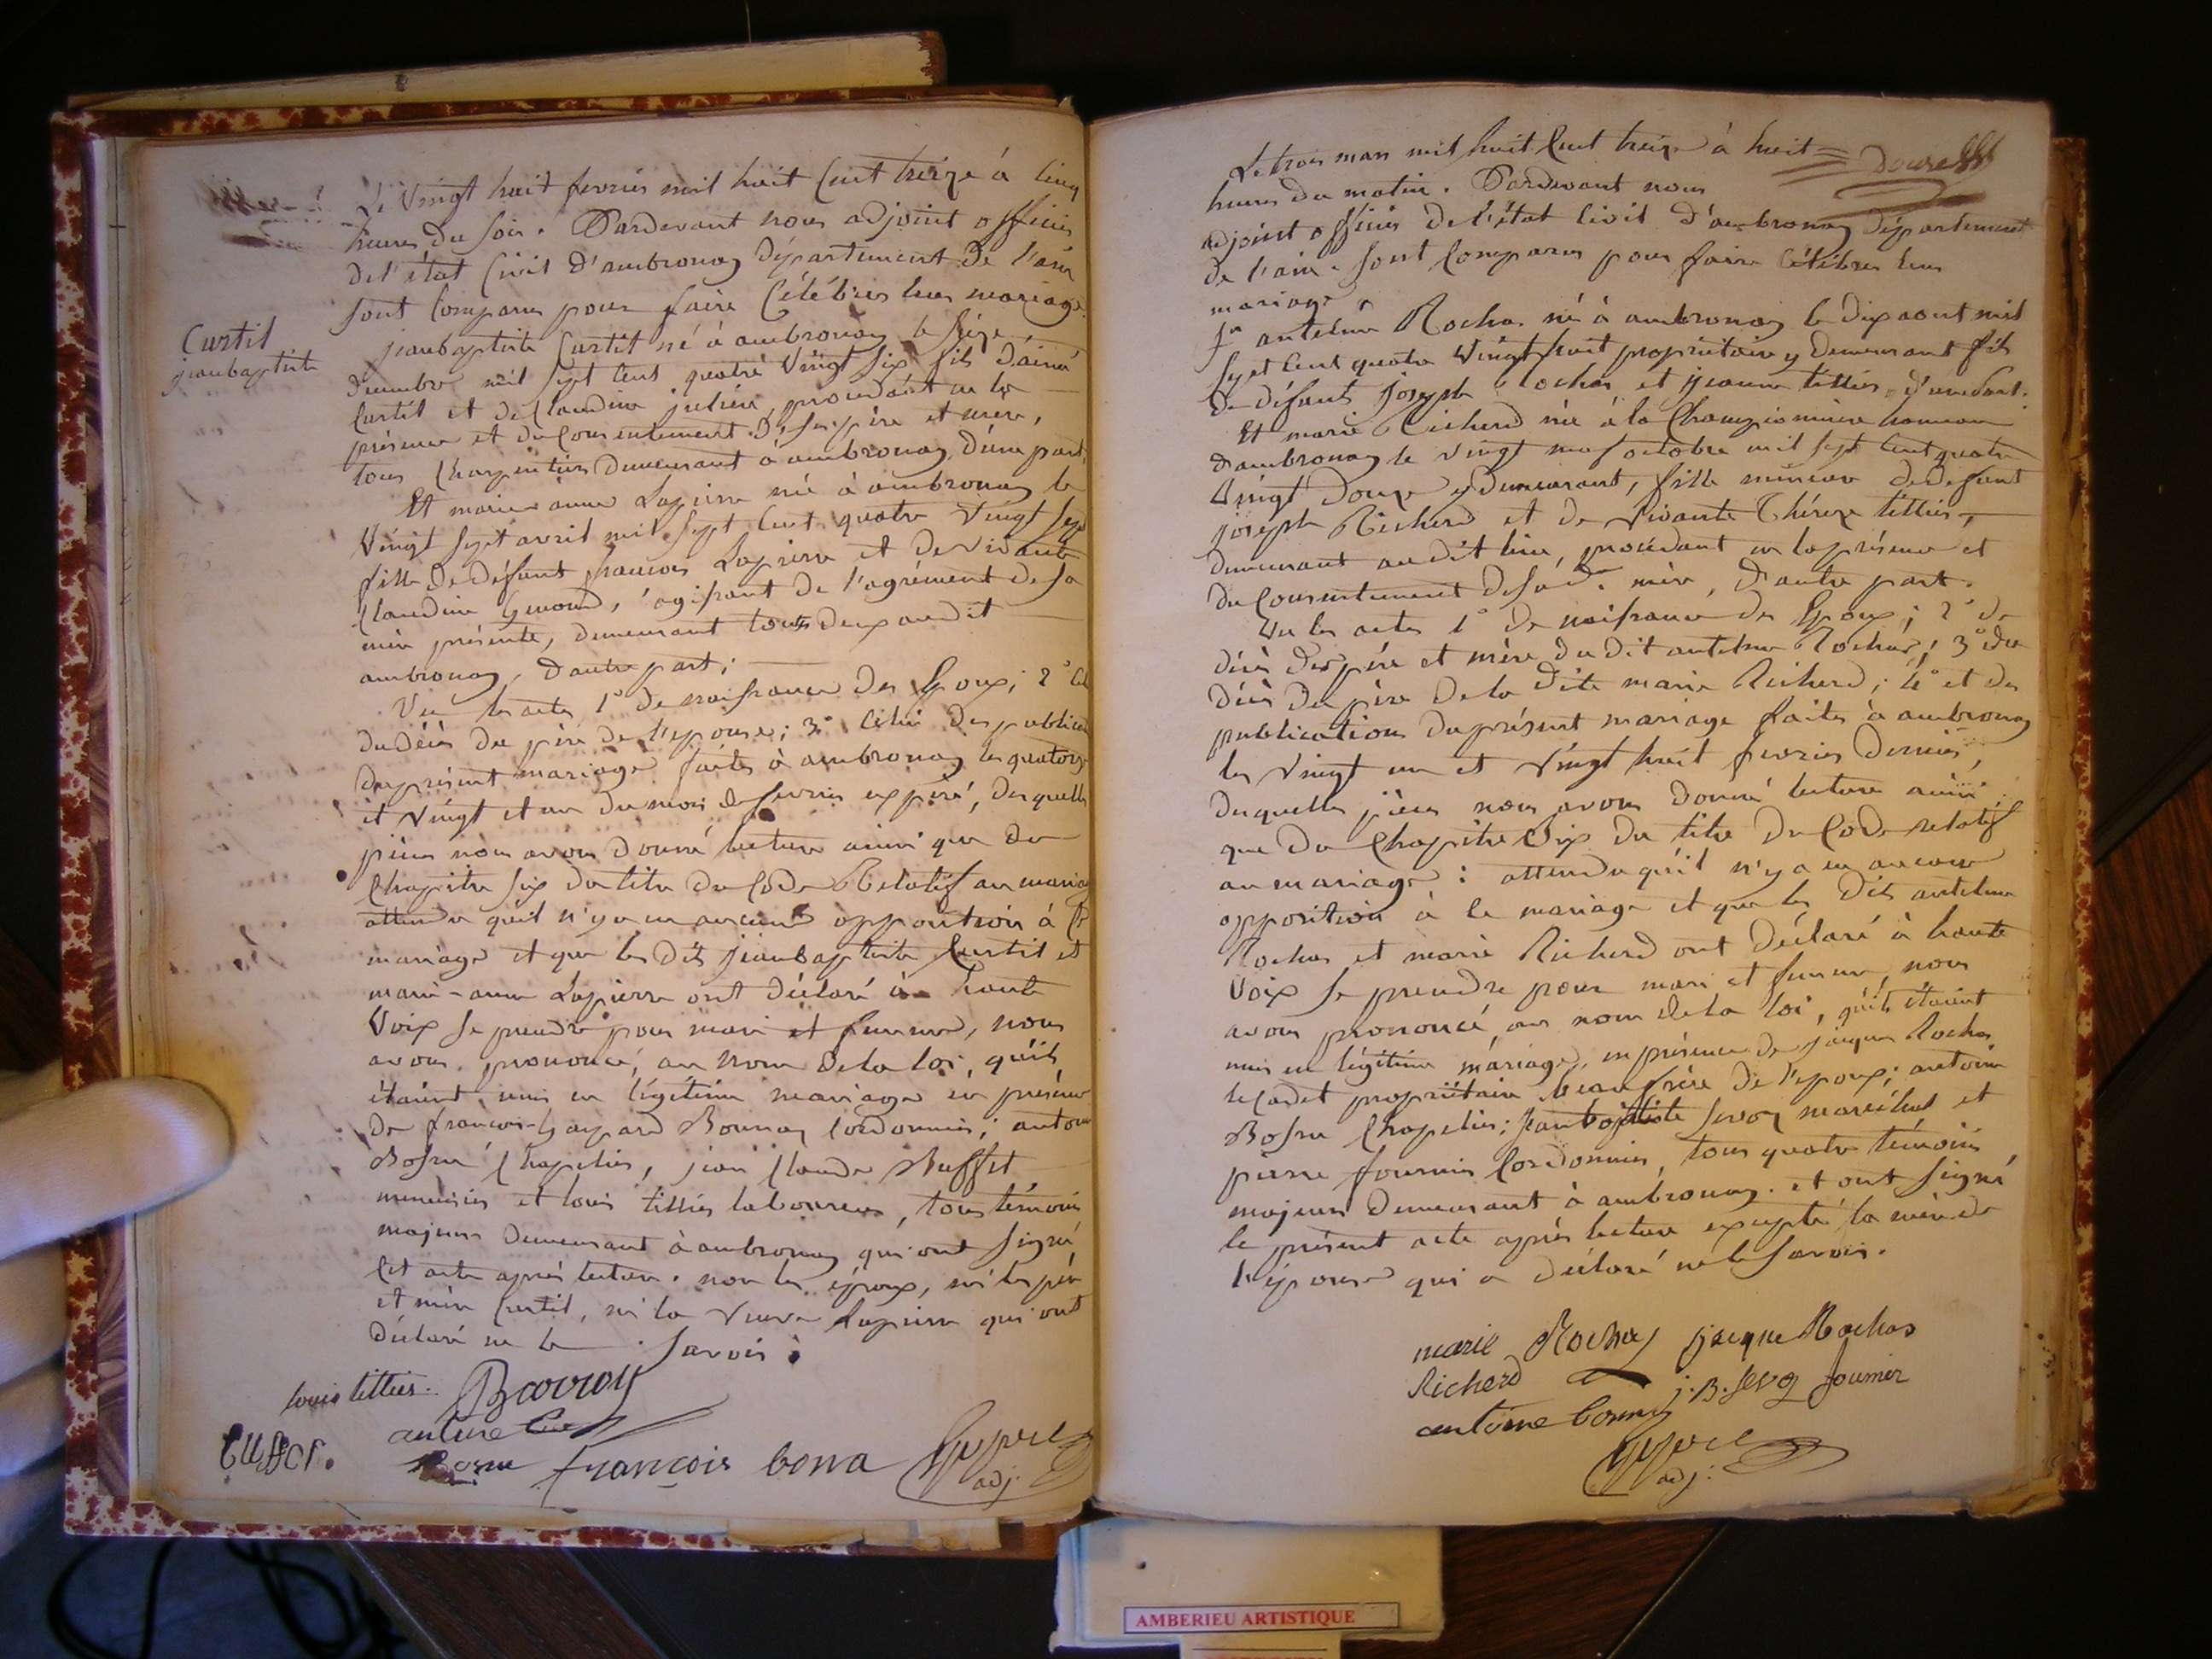 Le Vingt huit fevrier mil huit Cent treize à Cinq
heures du soir. Pardevant nous adjoint officier
de l'état Civil d'ambronay Département de l'ain
sont Comparus pour faire Célébrer leur mariage.
Curtil
jeanbaptiste
jeanbaptiste Curtil né à ambronay le seize
décembre mil sept Cent quatre Vingt six fils d'aimé
Curtil et de Claudine julien, procédant en la
présence et du Consentement de ses père et mère,
tous Charpentiers demeurant à ambronay, d'une part,
Et marie-anne Lapierre née à ambronay le
Vingt sept avril mil sept Cent quatre Vingt sept
fille de défunt francois Lapierre et de vivante
Claudine, agissant de l'agrément de sa
mère présente, demeurant tous deux audit
ambronay, d'autre part;
Vu les actes 1° de naissance des Epoux; 2°
du décès du père de l'epouse; 3° Celui des
du présent mariage faites à ambronay les quatorze
et Vingt et un du mois de fevrier expiré, desquelles
pièces nous avons donné lecture ainsi que du
Chapitre six du titre du Code Relatif au mariage
attendu qu'il n'y a eu aucune opposition à Ce
mariage et que les dits jeanbaptiste Curtil et
marie-anne Lapierre ont déclaré à haute
Voix se prendre pour mari et femme, nous
avons prononcé, au nom de la loi, qu'ils
étaient unis en légitime mariage en présence
de francois-gaspard Bonnaz Cordonnier; antoine
Bosne Chapelier, jean Claude Buffet
menuisier et louis tillier laboureur, tous témoins
majeurs demeurant à ambronay qui ont signé
Cet acte après lecture. non les époux, ni les père
et mère Curtil, ni la Veuve Lapierre qui ont
déclaré ne le savoir.
louis tillier.
antoine
Buffet.
françois bona
adj.
Le trois mars mil huit Cent treize à huit
heures du matin. Pardevant nous
adjoint officier de l'état Civil d'ambronay Département
de l'ain. sont Comparus pour faire Célébrer leur
mariage
antelme Rochas né à ambronay le dix aout mil
sept Cent quatre Vingt huit propriétaire y demeurant fils
de défunts joseph Rochas et jeanne tillier, d'une part.
Et marie Richerd née à la Championnière hameau
d'ambronay le Vingt neuf octobre mil sept Cent quatre
Vingt douze y demeurant, fille mineure de defunt
joseph Richerd et de Vivante Thérèze tillier,
demeurant audit lieu, procédant en la présence et
du Consentement de sa de. mère, d'autre part.
Vu les actes 1° de naissance des Epoux; 2° de
décès des père et mère du dit antelme Rochas; 3° du
décès du père de la dite marie Richerd; 4° et des
publications du présent mariage faites à ambronay
les Vingt un et Vingt huit fevrier dernier,
desquelles pièces nous avons donné lecture ainsi
que du Chapitre Six du titre du Code relatif
au mariage: attendu qu'il n'y a eu aucune
opposition à Ce mariage et que les dits antelme
Rochas et marie Richerd ont déclaré à haute
Voix se prendre pour mari et femme, nous
avons prononcé, au nom de la loi, qu'ils étaient
unis en légitime mariage, en présence de jacques Rochas
le Cadet propriétaire frère de l'epoux; antoine
Bosne Chapelier; jeanbaptiste Sevoz maréchal et
pierre fournier Cordonnier, tous quatre témoins
majeurs demeurant à ambronay. et ont signé
le présent acte après lecture excepté la mère de
l'épouse qui a déclaré ne le savoir.
marie Rochas jacque Rochas
Richerd j.B. Sevoz fournier
antoine
adj.
AMBERIEU ARTISTIQUE